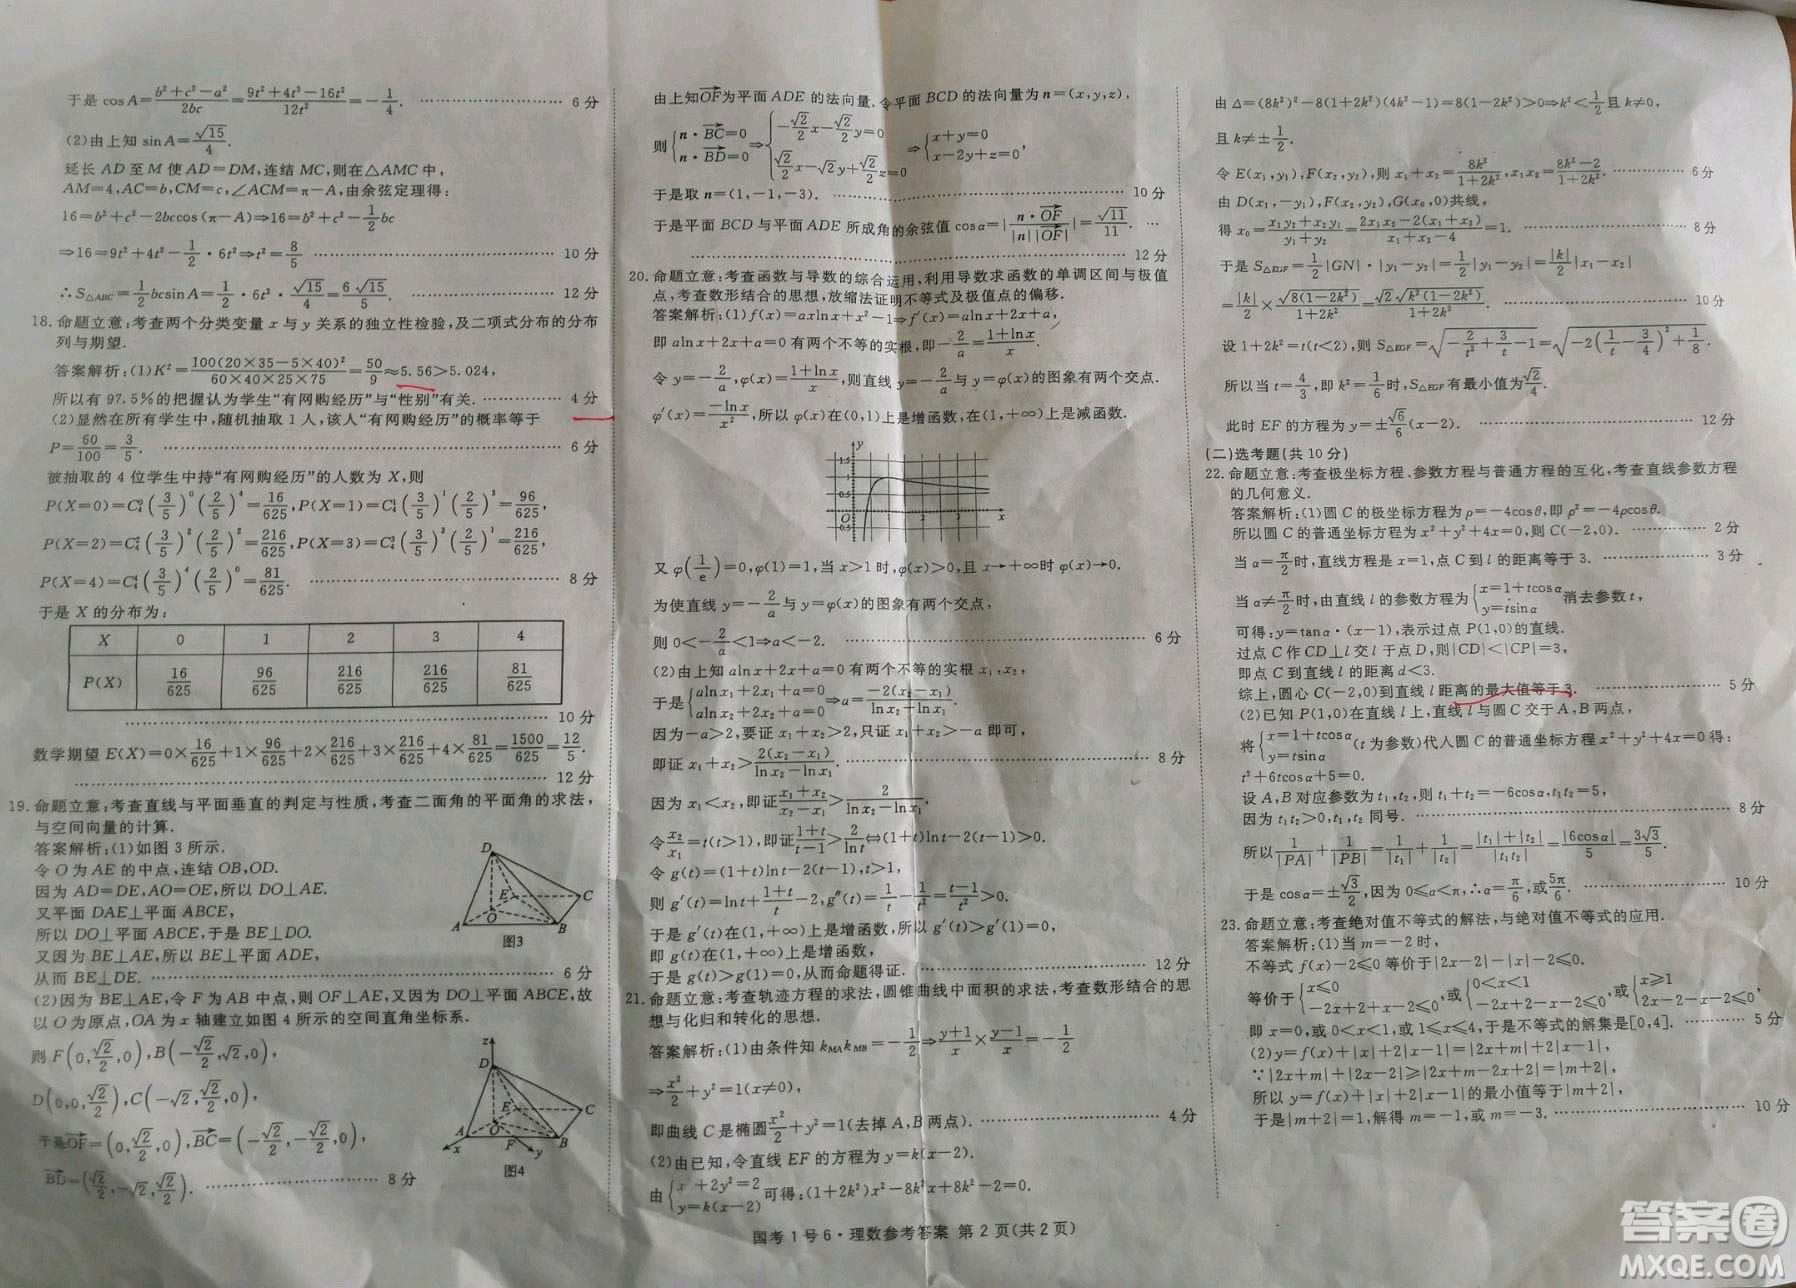 于是 cosA=(b²+c²-a²)/2bc=(9t²+4t²-16t²)/12t²=-1/4. ……………… 6分
(2)由上知 sinA=√15/4.
延长 AD 至 M 使 AD=DM,连结 MC,则在△AMC 中,
AM=4,AC=b,CM=c,∠ACM=π-A,由余弦定理得:
16=b²+c²-2bccos(π-A)⇒16=b²+c²-1/2bc
⇒16=9t²+4t²-1/2·6t²⇒t²=8/5 ……………… 10分
∴S△ABC=1/2bcsinA=1/2·6t²·√15/4=6√15/5. ……………… 12分
18.命题立意:考查两个分类变量 x 与 y 关系的独立性检验,及二项式分布的分布
列与期望.
答案解析:(1)K²=100(20×35-5×40)²/(60×40×25×75)=50/9≈5.56>5.024,
所以有 97.5%的把握认为学生“有网购经历”与“性别”有关. ………… 4分
(2)显然在所有学生中,随机抽取 1 人,该人“有网购经历”的概率等于
P=60/100=3/5. ……………… 6分
被抽取的 4 位学生中持“有网购经历”的人数为 X,则
P(X=0)=C₄⁰(3/5)⁰(2/5)⁴=16/625,P(X=1)=C₄¹(3/5)¹(2/5)³=96/625,
P(X=2)=C₄²(3/5)²(2/5)²=216/625,P(X=3)=C₄³(3/5)³(2/5)¹=216/625,
P(X=4)=C₄⁴(3/5)⁴(2/5)⁰=81/625. ……………… 8分
于是 X 的分布为:
X 0 1 2 3 4
P(X) 16/625 96/625 216/625 216/625 81/625
……………… 10分
数学期望 E(X)=0×16/625+1×96/625+2×216/625+3×216/625+4×81/625=1500/625=12/5.
……………… 12分
19.命题立意:考查直线与平面垂直的判定与性质,考查二面角的平面角的求法,
与空间向量的计算.
答案解析:(1)如图 3 所示.
令 O 为 AE 的中点,连结 OB,OD.
因为 AD=DE,AO=OE,所以 DO⊥AE.
又平面 DAE⊥平面 ABCE,
所以 DO⊥平面 ABCE,于是 BE⊥DO.
又因为 BE⊥AE,所以 BE⊥平面 ADE,
从而 BE⊥DE. ……………… 6分
D
E
C
O
A
B
图3
(2)因为 BE⊥AE,令 F 为 AB 中点,则 OF⊥AE,又因为 DO⊥平面 ABCE,故
以 O 为原点,OA 为 x 轴建立如图 4 所示的空间直角坐标系.
则 F(0,√2/2,0),B(-√2/2,√2,0),
D(0,0,√2/2),C(-√2,√2/2,0),
于是OF=(0,√2/2,0),BC=(-√2/2,-√2/2,0),
BD=(√2/2,-√2,√2/2). ……………… 8分
z
D
E
C
O
A
F
B
x
y
图4
由上知OF为平面 ADE 的法向量.令平面 BCD 的法向量为 n=(x,y,z),
则{n·BC=0 n·BD=0⇒{-√2/2x-√2/2y=0 √2/2x-√2y+√2/2z=0⇒{x+y=0 x-2y+z=0,
于是取 n=(1,-1,-3). ……………… 10分
于是平面 BCD 与平面 ADE 所成角的余弦值 cosα=|n·OF/|n||OF||=√11/11. …
……………… 12分
20.命题立意:考查函数与导数的综合运用,利用导数求函数的单调区间与极值
点,考查数形结合的思想,放缩法证明不等式及极值点的偏移.
答案解析:(1)f(x)=axlnx+x²-1⇒f′(x)=alnx+2x+a,
即 alnx+2x+a=0 有两个不等的实根,即-2/a=(1+lnx)/x.
令 y=-2/a,φ(x)=(1+lnx)/x,则直线 y=-2/a与 y=φ(x)的图象有两个交点.
φ′(x)=-lnx/x²,所以 φ(x)在(0,1)上是增函数,在(1,+∞)上是减函数.
y
1.5
1
0.5
O
1 2 3 x
0.5
又 φ(1/e)=0,φ(1)=1,当 x>1 时,φ(x)>0,且 x→+∞时 φ(x)→0.
为使直线 y=-2/a与 y=φ(x)的图象有两个交点,
则 0<-2/a<1⇒a<-2. ……………… 6分
(2)由上知 alnx+2x+a=0 有两个不等的实根 x₁,x₂,
于是{alnx₁+2x₁+a=0 alnx₂+2x₂+a=0⇒a=-2(x₂-x₁)/(lnx₂-lnx₁).
因为-a>2,要证 x₁+x₂>2,只证 x₁+x₂>-a 即可,
即证 x₁+x₂>2(x₂-x₁)/(lnx₂-lnx₁). ……………… 8分
因为 x₁<x₂,即证(x₁+x₂)/(x₂-x₁)>2/(lnx₂-lnx₁).
令x₂/x₁=t(t>1),即证(1+t)/(t-1)>2/lnt⇔(1+t)lnt-2(t-1)>0.
令 g(t)=(1+t)lnt-2(t-1),t>1,
则 g′(t)=lnt+(1+t)/t-2,g″(t)=1/t-1/t²=(t-1)/t²>0.
于是 g′(t)在(1,+∞)上是增函数,所以 g′(t)>g′(1)=0,
于是 g(t)在(1,+∞)上是增函数,
于是 g(t)>g(1)=0,从而命题得证. ……………… 12分
21.命题立意:考查轨迹方程的求法,圆锥曲线中面积的求法,考查数形结合的思
想与化归和转化的思想.
答案解析:(1)由条件知 kMAkMB=-1/2⇒(y+1)/x×(y-1)/x=-1/2
⇒x²/2+y²=1(x≠0)
即曲线 C 是椭圆x²/2+y²=1(去掉 A,B 两点). ……………… 4分
(2)由已知,令直线 EF 的方程为 y=k(x-2).
由{x²+2y²=2 y=k(x-2)可得:(1+2k²)x²-8k²x+8k²-2=0.
由 Δ=(8k²)²-8(1+2k²)(4k²-1)=8(1-2k²)>0⇒k²<1/2且 k≠0,
且 k≠±1/2.
令 E(x₁,y₁),F(x₂,y₂),则 x₁+x₂=8k²/(1+2k²),x₁x₂=(8k²-2)/(1+2k²). ……… 6分
由 D(x₁,-y₁),F(x₂,y₂),G(x₀,0)共线,
得 x₀=(x₁y₂+x₂y₁)/(y₁+y₂)=(2x₁x₂-2(x₁+x₂))/(x₁+x₂-4)=1. ……………… 8分
于是 S△EGF=1/2|GN|·|y₁-y₂|=1/2|y₁-y₂|=|k|/2|x₁-x₂|
=|k|/2×√(8(1-2k²))/(1+2k²)=√2√(k²(1-2k²))/(1+2k²). ……………… 10分
设 1+2k²=t(t<2),则 S△EGF=√(-2/t²+3/t-1)=√(-2(1/t-3/4)²+1/8).
所以当 t=4/3,即 k²=1/6时,S△EGF有最小值为√2/4.
此时 EF 的方程为 y=±√6/6(x-2). ……………… 12分
(二)选考题(共 10 分)
22.命题立意:考查极坐标方程、参数方程与普通方程的互化,考查直线参数方程
的几何意义.
答案解析:(1)圆 C 的极坐标方程为 ρ=-4cosθ,即 ρ²=-4ρcosθ.
所以圆 C 的普通坐标方程为 x²+y²+4x=0,则 C(-2,0). ………… 2分
当 α=π/2时,直线方程是 x=1,点 C 到 l 的距离等于 3. ……………… 3分
当 α≠π/2时,由直线 l 的参数方程为{x=1+tcosα y=tsinα消去参数 t,
可得:y=tanα·(x-1),表示过点 P(1,0)的直线.
过点 C 作 CD⊥l 交 l 于点 D,则|CD|<|CP|=3,
即点 C 到直线 l 的距离 d<3.
综上,圆心 C(-2,0)到直线 l 距离的最大值等于 3. ……………… 5分
(2)已知 P(1,0)在直线 l 上,直线 l 与圆 C 交于 A,B 两点,
将{x=1+tcosα y=tsinα(t 为参数)代人圆 C 的普通坐标方程 x²+y²+4x=0 得:
t²+6tcosα+5=0.
设 A,B 对应参数为 t₁,t₂,则 t₁+t₂=-6cosα,t₁t₂=5,
因为 t₁t₂>0,t₁,t₂ 同号. ……………… 8分
所以1/|PA|+1/|PB|=1/|t₁|+1/|t₂|=(|t₁|+|t₂|)/|t₁t₂|=|6cosα|/5=3√3/5.
于是 cosα=±√3/2,因为 0≤α<π,∴α=π/6,或5π/6. ……………… 10分
23.命题立意:考查绝对值不等式的解法,与绝对值不等式的应用.
答案解析:(1)当 m=-2 时,
不等式 f(x)-2≤0 等价于|2x-2|-x-2≤0.
等价于{x≤0 -2x+2+x-2≤0,或{0<x<1 -2x+2-x-2≤0,或{x≥1 2x-2-x-2≤0,
即 x=0,或 0<x<1,或 1≤x≤4,于是不等式的解集是[0,4]. ………… 5分
(2)y=f(x)+|x|+2|x-1|=|2x+m|+2|x-1|.
∵|2x+m|+|2x-2|≥|2x+m-2x+2|=|m+2|,
所以 y=f(x)+|x|+2|x-1|的最小值等于|m+2|,
于是|m+2|=1,解得 m=-1,或 m=-3. ……………… 10分
国考 1 号 6·理数参考答案 第 2 页(共 2 页)
答案圈
MXQE.COM